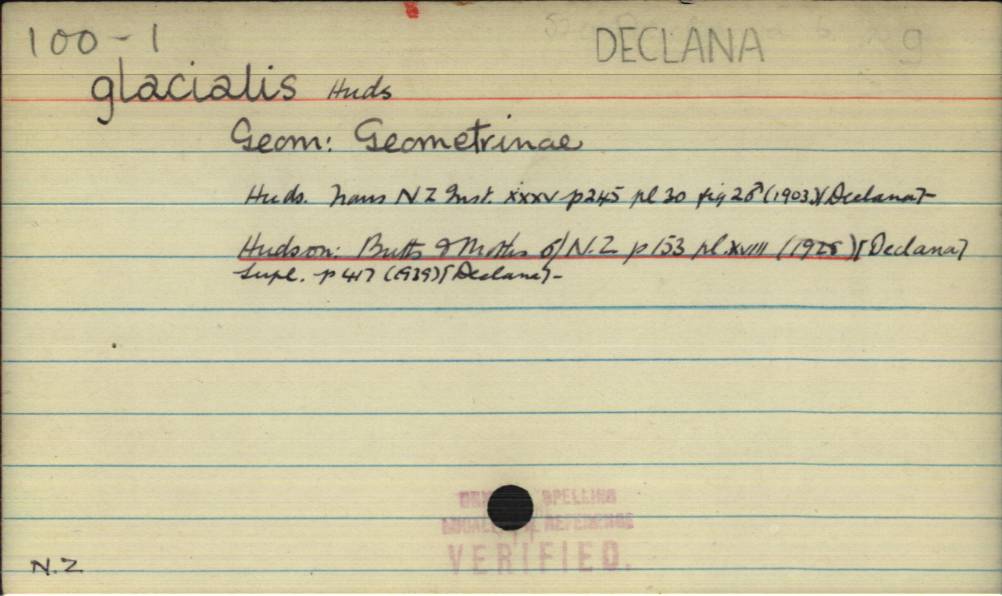 100-1 DECLANA g
glacialis Huds
Geom: Geometrinae
Huds. Trans N Z Inst. xxxv p245 pl 30 fig 2♂ (1903)[Declana]-
Hudson: Butts & Moths of N.Z p153 pl.xviii (1928)[Declana]
Supl. p 417 (1939)[Declana]-
SPELLING
REFERENCE
VERIFIED.
N.Z